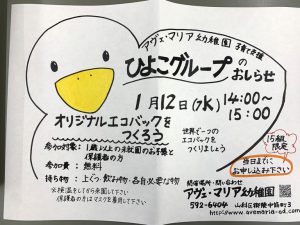 アヴェ・マリア幼稚園 子育て支援
ひよこグループのおしらせ
1月12日(水) 14:00~15:00
オリジナルエコバックをつくろう
世界で一つのエコバックをつくりましょう
15組限定
参加対象: 1歳以上の未就園のお子様と保護者の方
参加費: 無料
持ち物: 上ぐつ・飲み物・各自必要な物
※検温をしてから来園して下さい
保護者の方はマスクを着用して下さい
当日までにお申し込み下さい
開催場所・問い合わせ
アヴェ・マリア幼稚園
592-6404
www.avemaria-ed.com